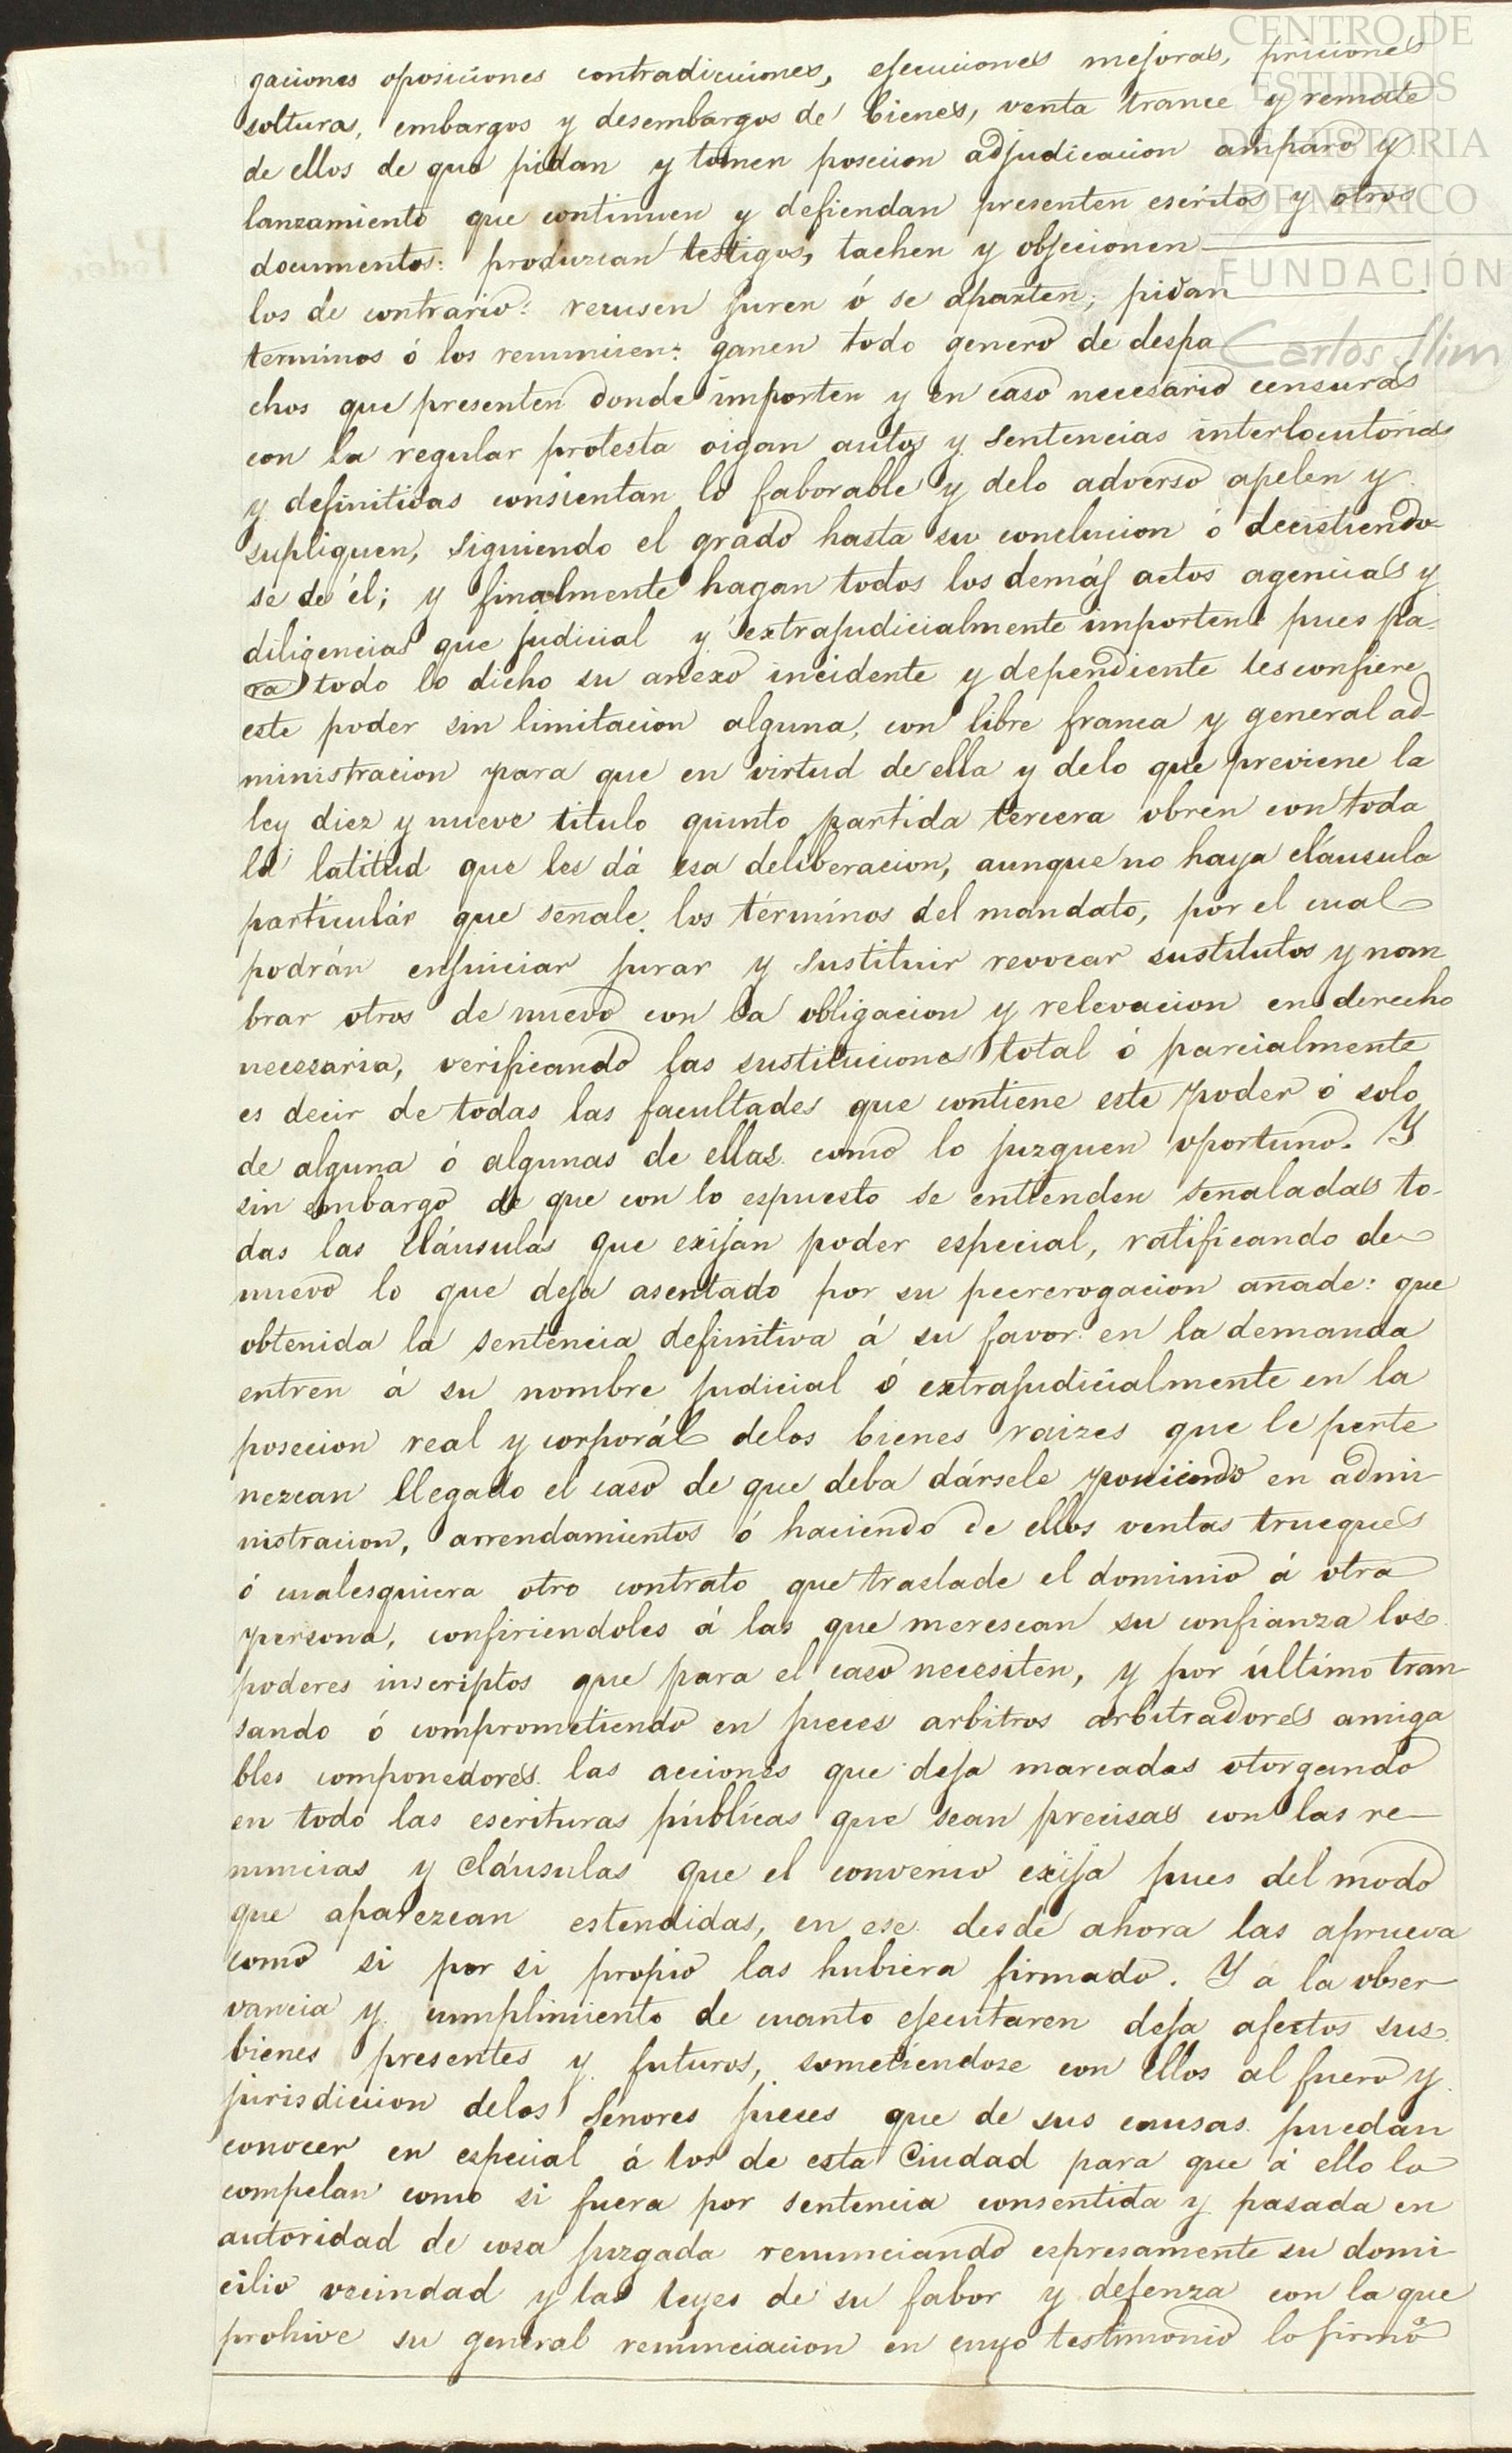 CENTRO DE
ESTUDIOS
DE HISTORIA
DE MÉXICO
FUNDACIÓN
Carlos Slim
gaciones oposiciones contradicciones, ejecuciones mejoras, priciones
solturas, embargos y desembargos de bienes, venta trance y remate
de ellos de que pidan y tomen posecion adjudicacion amparo y
lanzamiento que continuen y defiendan presenten escritos y otros
documentos: produzcan testigos, tachen y objecionen
los de contrario: recusen juren ó se aparten; pidan
terminos ó los renuncien: ganen todo genero de despa
chos que presenten donde importen y en caso necesario censuras
con la regular protesta oigan autos y sentencias interlocutorias
y definitivas consientan lo faborable y delo adverso apelen y
supliquen, siguiendo el grado hasta su conclucion ó decistiendo-
se de él; y finalmente hagan todos los demás actos agencias y
diligencias que judicial y extrajudicialmente importen pues pa-
ra todo lo dicho su anexo incidente y dependiente les confiere
este poder sin limitacion alguna, con libre franca y general ad-
ministracion para que en virtud de ella y delo que previene la
ley diez y nueve titulo quinto partida tercera obren con toda
la latitud que les dá esa deliberacion, aunque no haya cláusula
particulár que señale los términos del mandato, por el cual
podrán enjuiciar jurar y sustituir revocar sustitutos y nom
brar otros de nuevo con la obligacion y relevacion en derecho
necesaria, verificando las sustituciones total ó parcialmente
es decir de todas las facultades que contiene este poder ó solo
de alguna ó algunas de ellas como lo juzguen oportuno. Y
sin embargo de que con lo espuesto se entienden señaladas to-
das las cláusulas que exijan poder especial, ratificando de
nuevo lo que deja asentado por su pecrerogacion añade: que
obtenida la sentencia definitiva á su favor en la demanda
entren á su nombre judicial ó extrajudicialmente en la
posecion real y corporál delos bienes raizes que le perte
nezcan llegado el caso de que deba dársele poniendo en admi-
nistracion, arrendamientos ó haciendo de ellos ventas trueques
ó cualesquiera otro contrato que traslade el dominio á otra
persona, confiriendoles á las que merescan su confianza los
poderes inscriptos que para el caso necesiten, y por último tran-
sando ó comprometiendo en jueces arbitros arbitradores amiga
bles componedores las acciones que deja marcadas otorgando
en todo las escrituras públicas que sean precisas con las re-
nuncias y cláusulas que el convenio exija pues del modo
que aparezcan estendidas, en ese desde ahora las aprueva
como si por si propio las hubiera firmado. Y á la obser-
vancia y cumplimiento de cuanto ejecutaren deja afectos sus
bienes presentes y futuros, sometiendose con ellos al fuero y
jurisdiccion delos Señores jueces que de sus causas puedan
conocer en especial á los de esta Ciudad para que á ello lo
compelan como si fuera por sentencia consentida y pasada en
autoridad de cosa juzgada renunciando espresamente su domi-
cilio vecindad y las leyes de su fabor y defenza con la que
prohive su general renunciacion en cuyo testimonio lo firmó